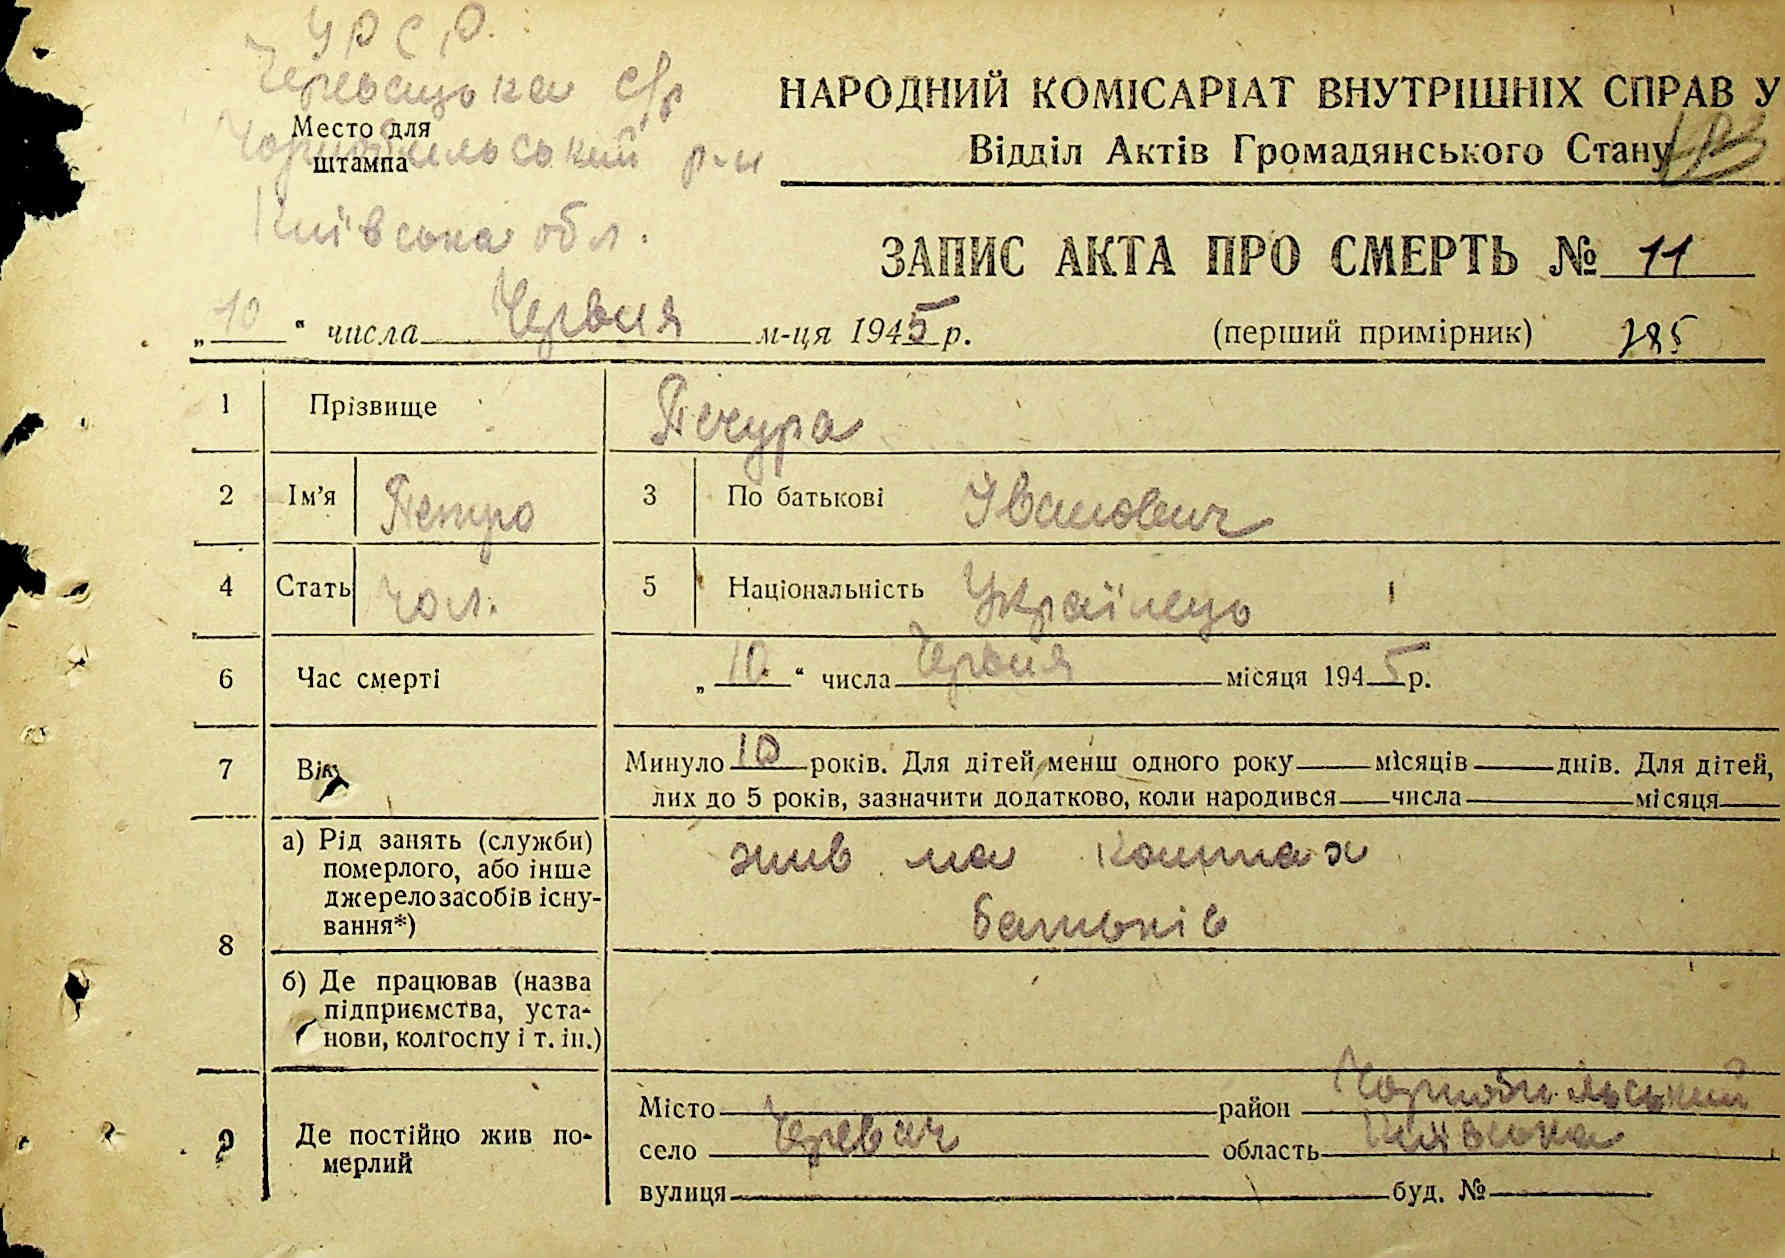 УРСР.
Черевацька с/р
Место для
штампа
Чорнобильський р-н
Київська обл.
НАРОДНИЙ КОМІСАРІАТ ВНУТРІШНІХ СПРАВ У
Відділ Актів Громадянського Стану
ЗАПИС АКТА ПРО СМЕРТЬ № 11
„10“ числа Червня м-ця 1945 р.
(перший примірник) 285
1 Прізвище Печура
2 Ім'я Петро 3 По батькові Іванович
4 Стать Чол. 5 Національність Українець
6 Час смерті „10“ числа Червня місяця 1945 р.
7 Вік Минуло 10 років. Для дітей менш одного року місяців днів. Для дітей,
лих до 5 років, зазначити додатково, коли народився числа місяця
8 а) Рід занять (служби)
померлого, або інше
джерело засобів існу-
вання*)
жив на коштах
батьків
б) Де працював (назва
підприємства, уста-
нови, колгоспу і т. ін.)
9 Де постійно жив по-
мерлий
Місто район Чорнобильський
село Черевач область Київська
вулиця буд. №